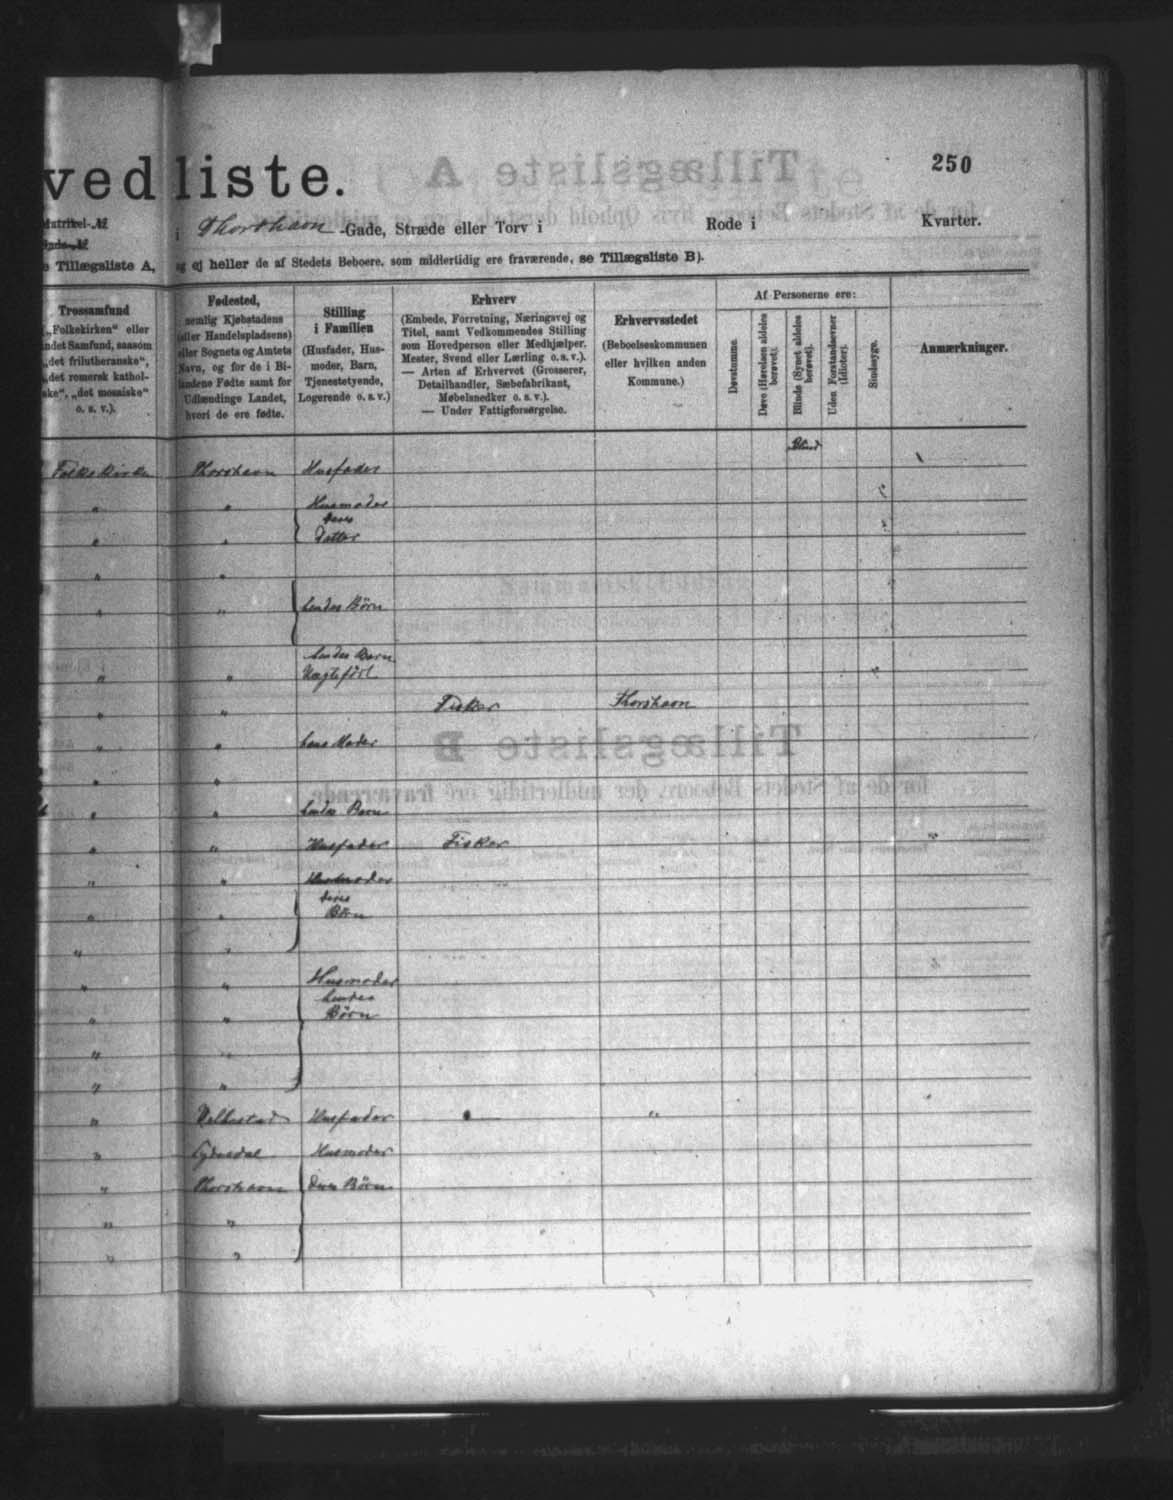 vedliste.
250
Matrikel-№
i Thorshavn -Gade, Stræde eller Torv i
Rode i
Kvarter.
Tillægsliste A,
og ej heller de af Stedets Beboere, som midlertidig ere fraværende, se Tillægsliste B).
Trossamfund
(„Folkekirken“ eller
andet Samfund, saasom
„det frilutheranske“,
„det romersk kathol-
ske“, „det mosaiske“
o. s. v.).
Fødested,
nemlig Kjøbstadens
(eller Handelspladsens)
eller Sognets og Amtets
Navn, og for de i Bi-
landene Fødte samt for
Udlændinge Landet,
hvori de ere fødte.
Stilling
i Familien
(Husfader, Hus-
moder, Barn,
Tjenestetyende,
Logerende o. s. v.)
Erhverv
(Embede, Forretning, Næringsvej og
Titel, samt Vedkommendes Stilling
som Hovedperson eller Medhjælper,
Mester, Svend eller Lærling o. s. v.).
— Arten af Erhvervet (Grosserer,
Detailhandler, Sæbefabrikant,
Møbelsnedker o. s. v.).
— Under Fattigforsørgelse.
Erhvervsstedet
(Beboelseskommunen
eller hvilken anden
Kommune.)
Af Personerne ere:
Døvstumme.
Døve (Hørelsen aldeles
berøvet).
Blinde (Synet aldeles
berøvet).
Uden Forstandsevner
(Idioter).
Sindssyge.
Anmærkninger.
Blind
Folkekirken Thorshavn Husfader
" " Husmoder
deres
" " Datter
" "
" " hendes Børn
hendes Barn
" " Uægtefødt
" " Fisker Thorshavn
" " hans Moder
" "
" " hendes Barn
" " Husfader Fisker "
" " Husmoder
deres
" " Børn
" "
" " Husmoder
hendes
" " Børn
" "
" "
" Velbestad Husfader "
" Sydredal Husmoder
" Thorshavn deres Børn
" "
" "